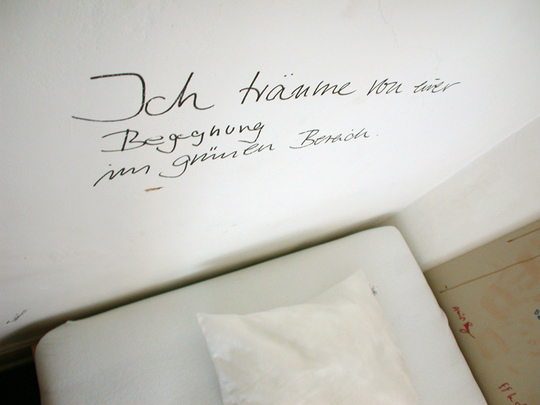 Ich träume von einer
Begegnung
im grünen Bereich.